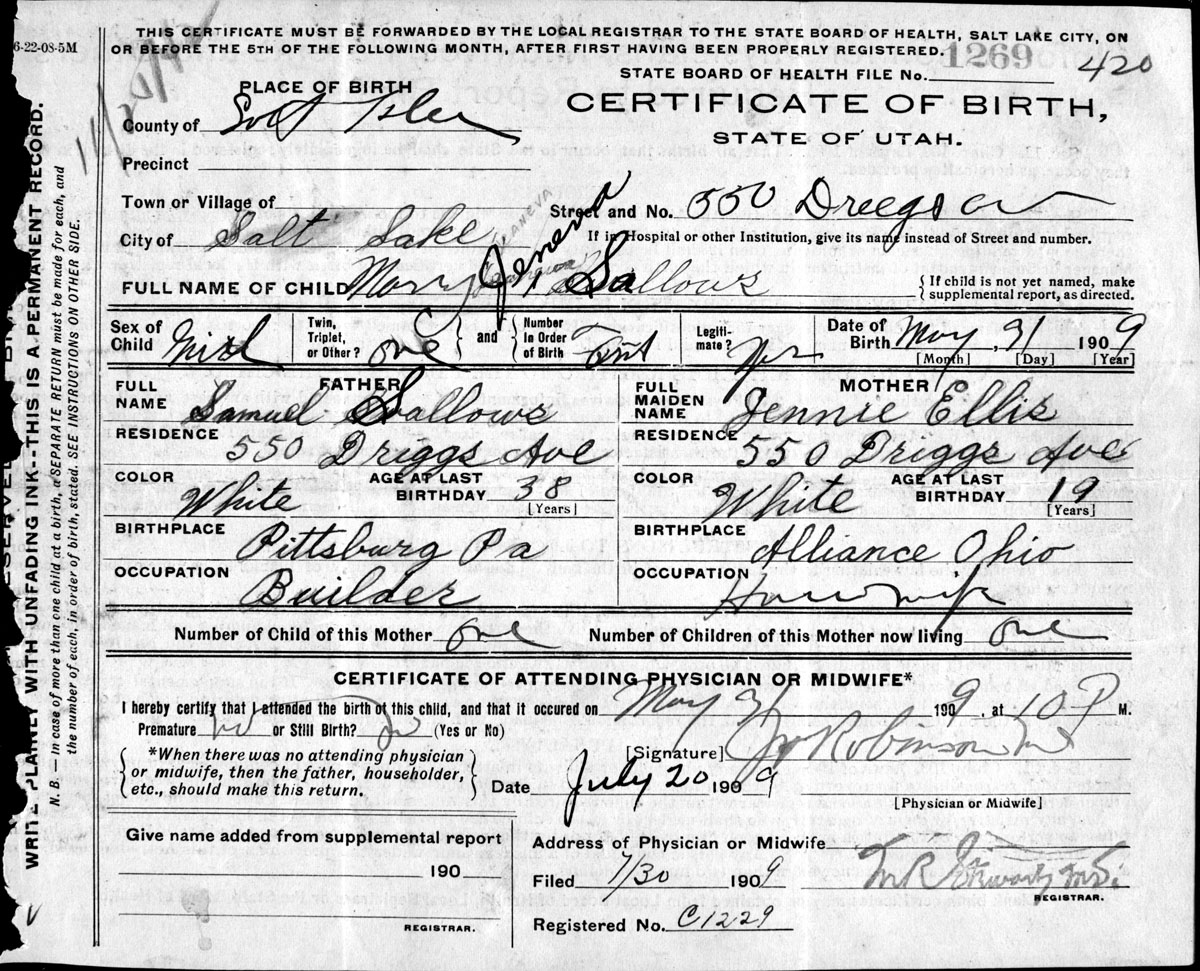 6-22-08-5M
THIS CERTIFICATE MUST BE FORWARDED BY THE LOCAL REGISTRAR TO THE STATE BOARD OF HEALTH, SALT LAKE CITY, ON
OR BEFORE THE 5TH OF THE FOLLOWING MONTH, AFTER FIRST HAVING BEEN PROPERLY REGISTERED.
1269
STATE BOARD OF HEALTH FILE No. 420
PLACE OF BIRTH
CERTIFICATE OF BIRTH,
STATE OF UTAH.
County of
Precinct
Town or Village of
Street and No. 550
City of Salt Lake
If in Hospital or other Institution, give its name instead of Street and number.
GANEVA
FULL NAME OF CHILD Mary Geneva Sallows
{ If child is not yet named, make
supplemental report, as directed.
Sex of
Child
Twin,
Triplet,
or Other? one
} and {
Number
in Order
of Birth
Legiti-
mate? Yes
Date of
Birth May 31 1909
[Month] [Day] [Year]
FATHER
FULL
NAME Samuel Sallows
RESIDENCE 550 Driggs Ave
COLOR White
AGE AT LAST
BIRTHDAY 38
[Years]
BIRTHPLACE Pittsburg Pa
OCCUPATION Builder
MOTHER
FULL
MAIDEN
NAME Jennie Ellis
RESIDENCE 550 Driggs Ave
COLOR White
AGE AT LAST
BIRTHDAY 19
[Years]
BIRTHPLACE Alliance Ohio
OCCUPATION Housewife
Number of Child of this Mother one Number of Children of this Mother now living one
CERTIFICATE OF ATTENDING PHYSICIAN OR MIDWIFE*
I hereby certify that I attended the birth of this child, and that it occured on May 31 1909, at 10 P M.
Premature no or Still Birth? no (Yes or No)
{ *When there was no attending physician
or midwife, then the father, householder,
etc., should make this return. }
[Signature] Robinson
Date July 20 1909
[Physician or Midwife]
Give name added from supplemental report
190
REGISTRAR.
Address of Physician or Midwife
Filed 7/30 1909
REGISTRAR.
Registered No. C1229
WRITE PLAINLY WITH UNFADING INK--THIS IS A PERMANENT RECORD.
N. B. In case of more than one child at a birth, a SEPARATE RETURN must be made for each, and
the number of each, in order of birth, stated. SEE INSTRUCTIONS ON OTHER SIDE.